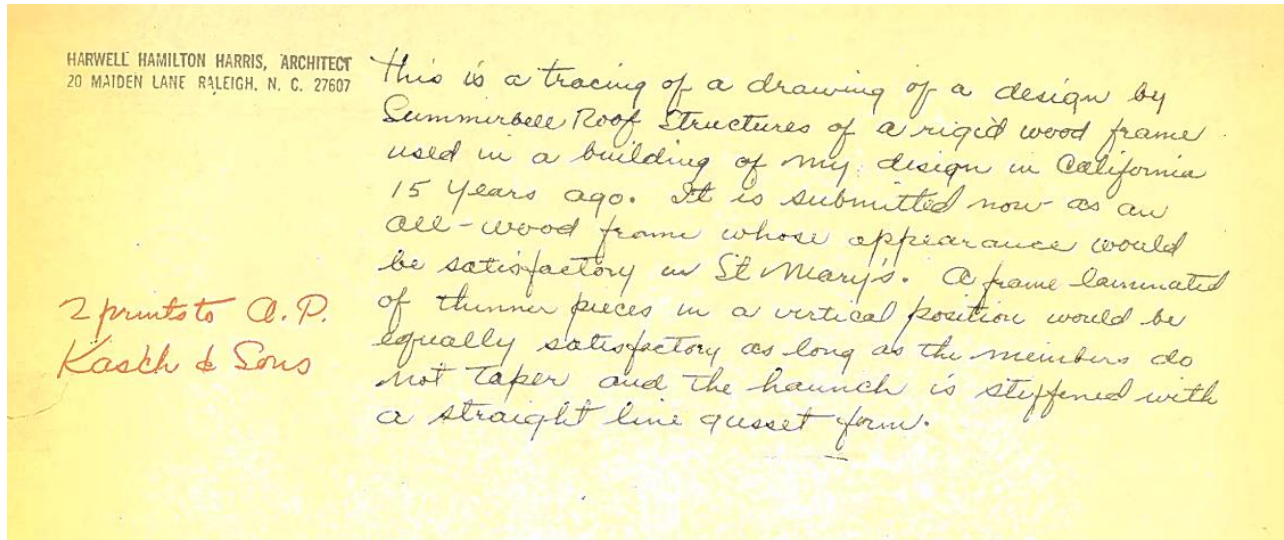 HARWELL HAMILTON HARRIS, ARCHITECT
20 MAIDEN LANE RALEIGH, N. C. 27607
This is a tracing of a drawing of a design by
Summerbell Roof Structures of a rigid wood frame
used in a building of my design in California
15 years ago. It is submitted now as an
all-wood frame whose appearance would
be satisfactory in St Mary's. A frame laminated
of thinner pieces in a vertical position would be
equally satisfactory as long as the members do
not taper and the haunch is stiffened with
a straight line gusset form.
2 prints to A. P.
Kasch & Sons